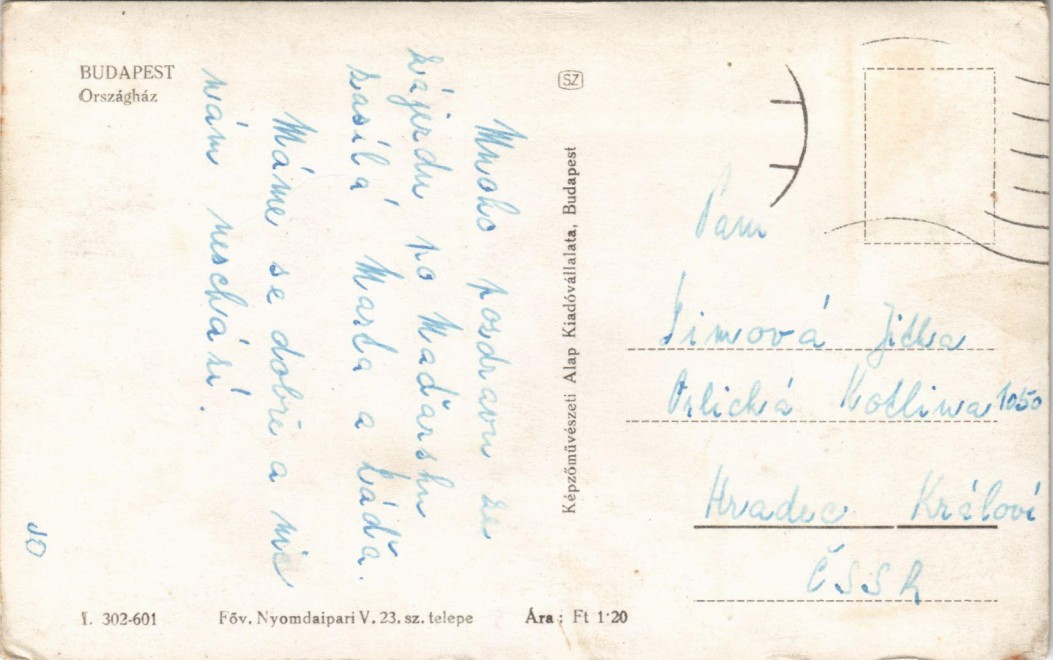 BUDAPEST
Országház
SZ
Mnoho pozdravů ze
zájezdu po Maďarsku
zasílá Marta a Láďa.
Máme se dobře a nic
nám neschází.
Képzőművészeti Alap Kiadóvállalata, Budapest
Paní
Simová Jitka
Orlická Kotlina 1050
Hradec Královí
ČSSR
10
I. 302-601 Főv. Nyomdaipari V. 23. sz. telepe Ára: Ft 1·20